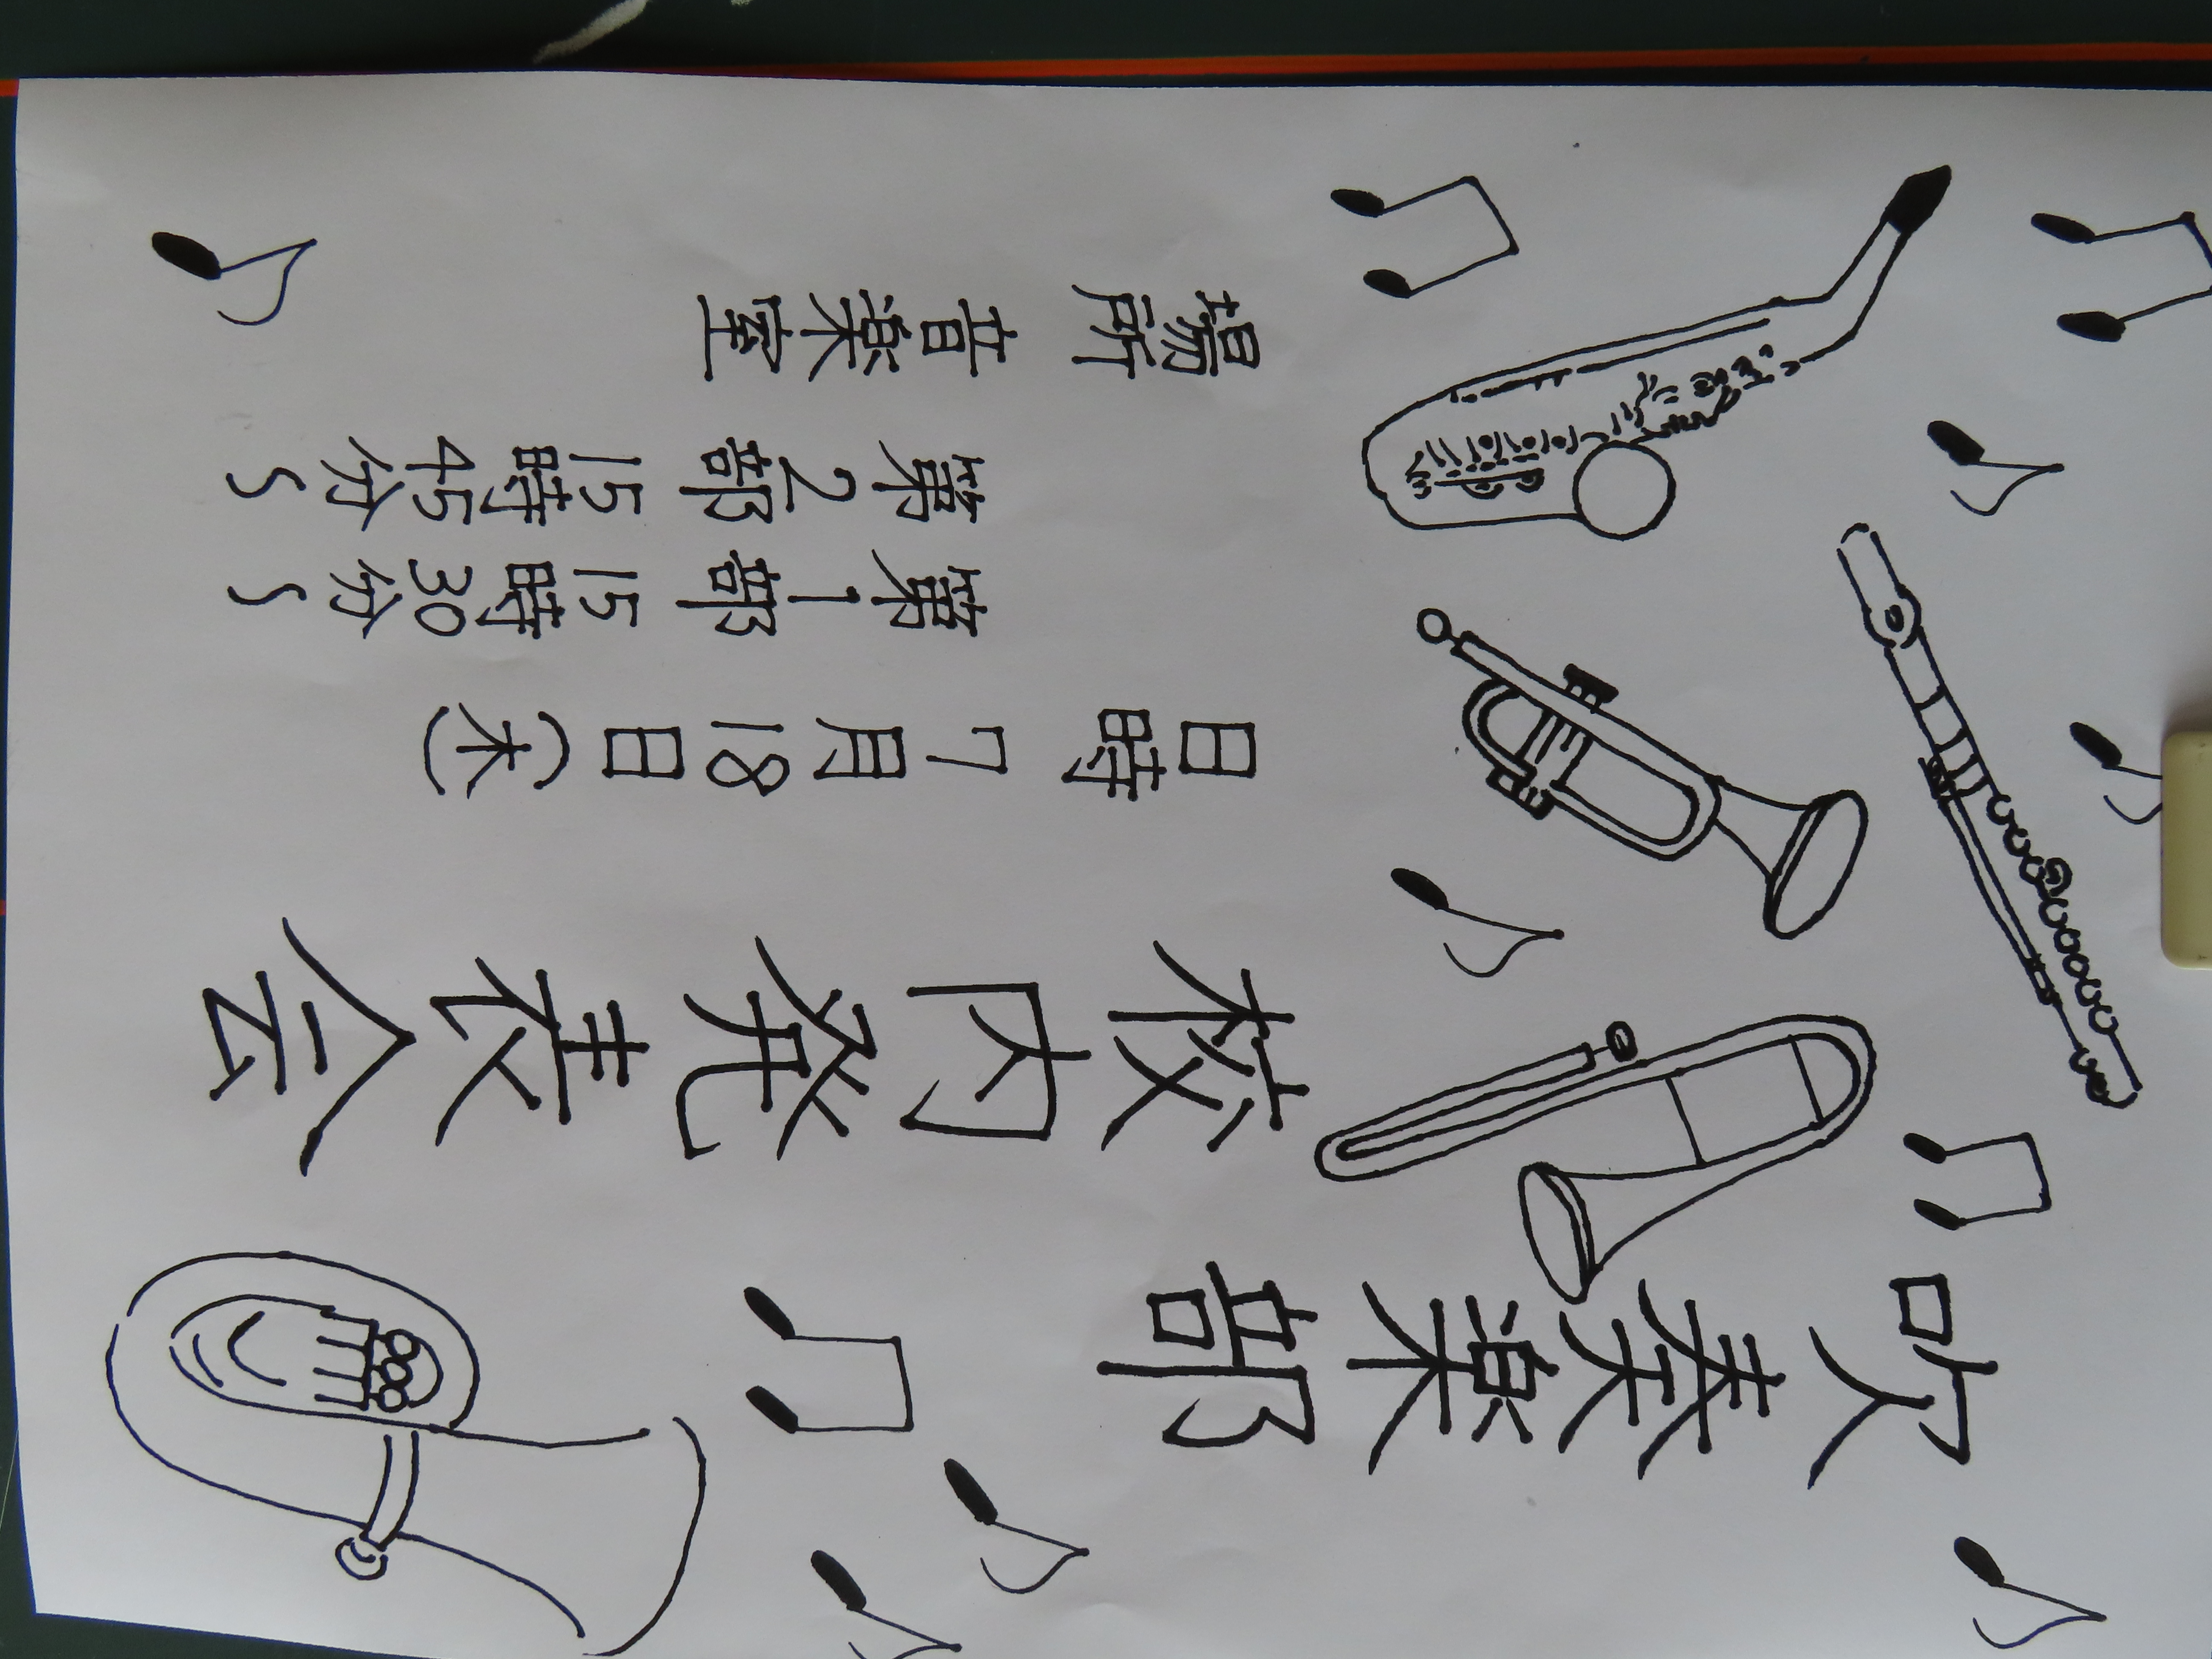 吹奏楽部
校内発表会
日時 7月18日(木)
第1部 15時30分〜
第2部 15時45分〜
場所 音楽室